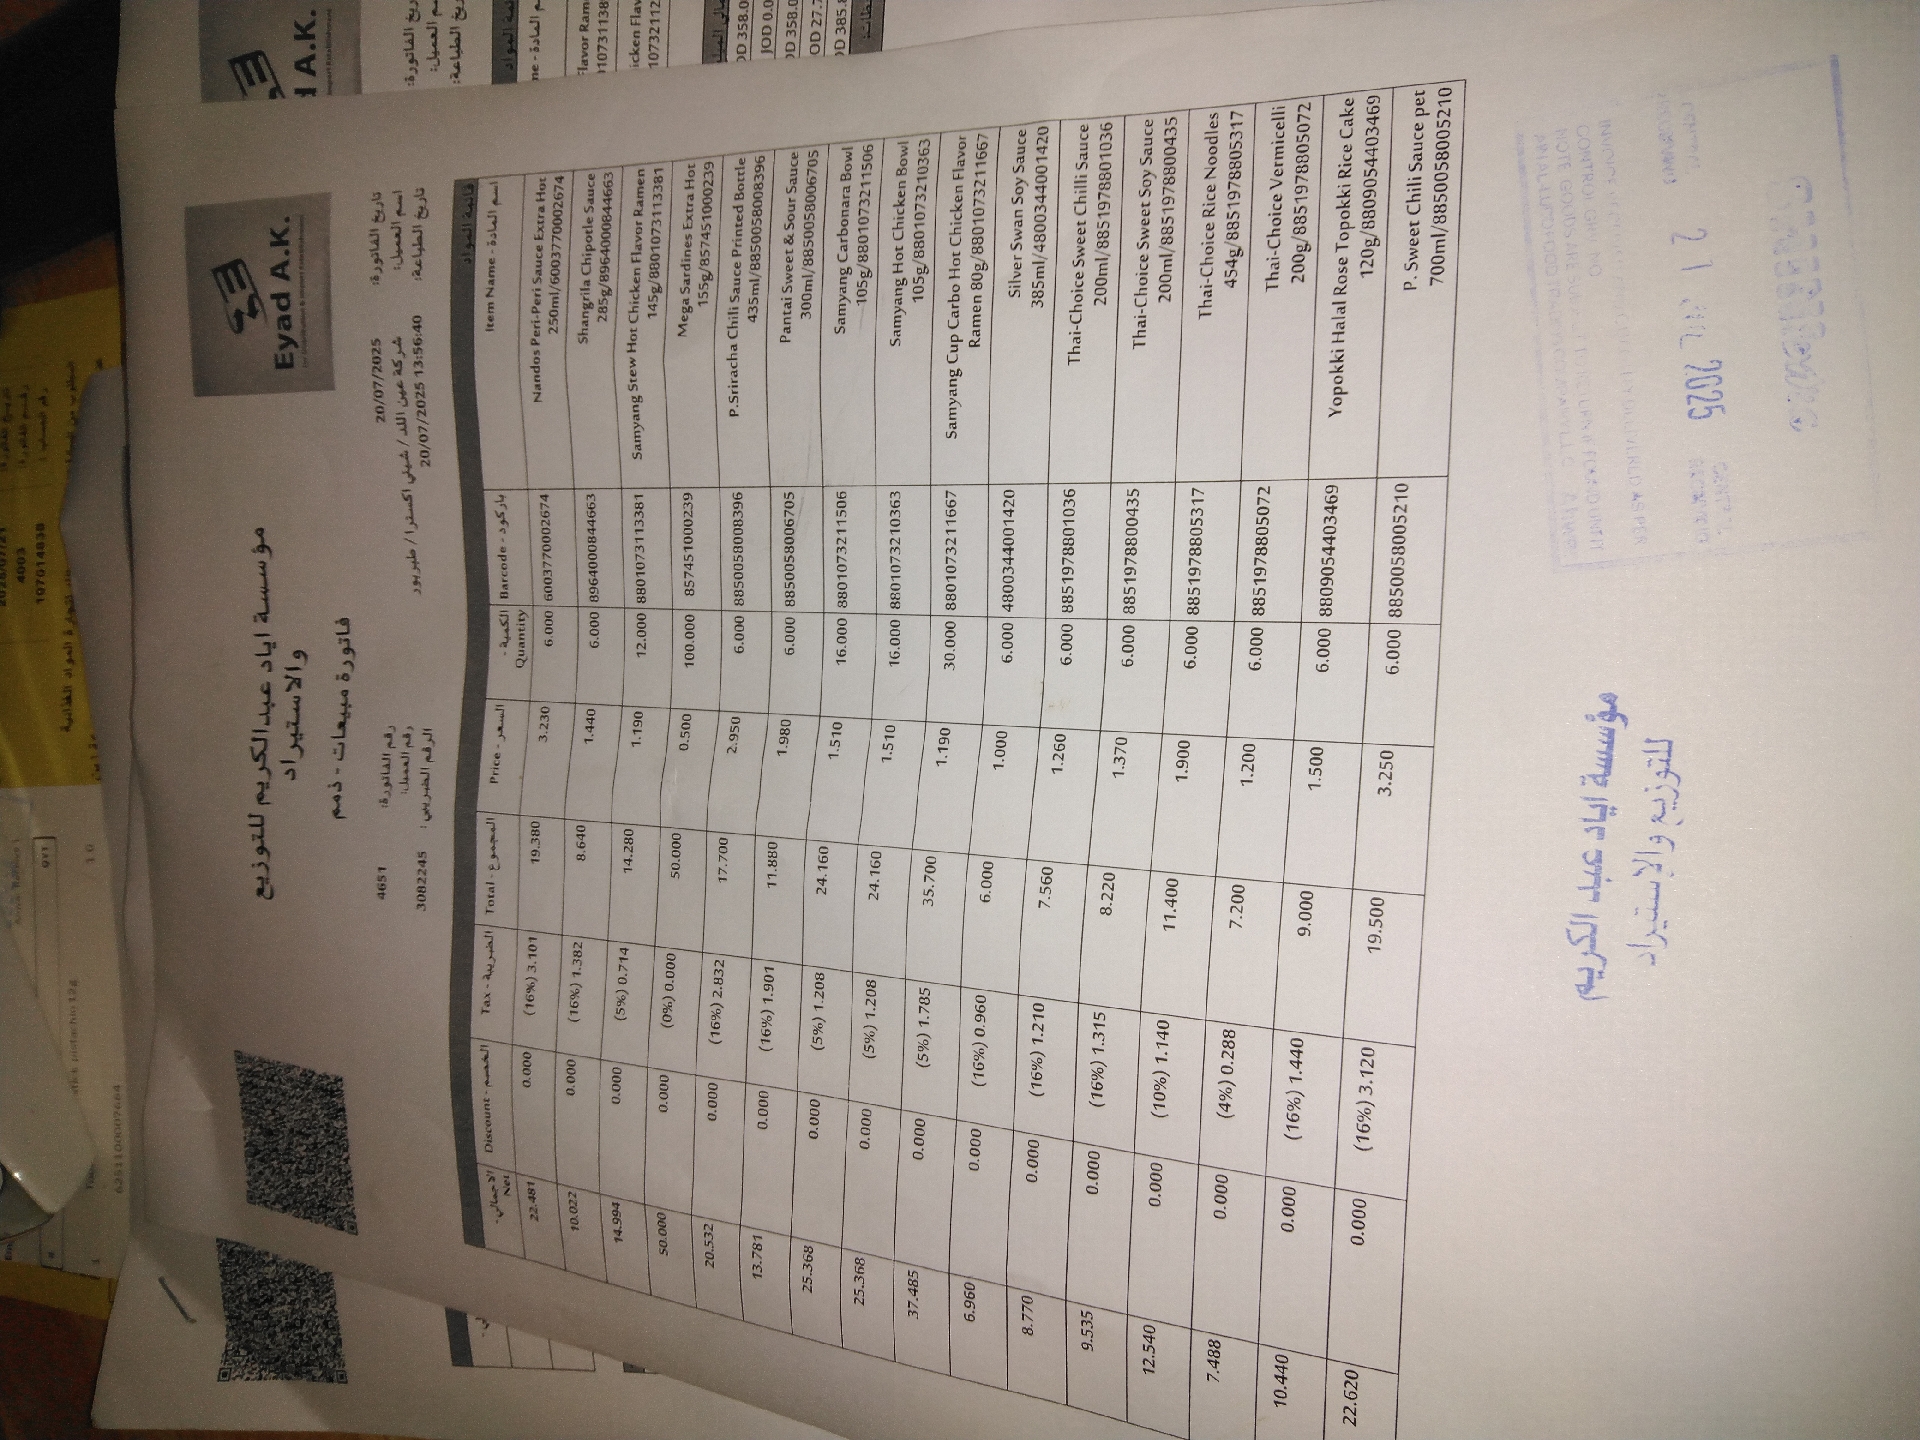 Eyad A.K.
مؤسسة اياد عبد الكريم للتوزيع
والاستيراد
فاتورة مبيعات - ذمم
تاريخ الفاتورة: 20/07/2025 رقم الفاتورة: 4651
اسم العميل: شركة عين الله / شيني اكسترا / طبربور رقم العميل:
تاريخ الطباعة: 20/07/2025 13:56:40 الرقم الضريبي : 3082245
قائمة المواد
اسم المادة - Item Name باركود - Barcode الكمية - Quantity السعر - Price المجموع - Total الضريبة - Tax الخصم - Discount الاجمالي - Net
Nandos Peri-Peri Sauce Extra Hot 250ml/6003770002674 6003770002674 6.000 3.230 19.380 (16%) 3.101 0.000 22.481
Shangrila Chipotle Sauce 285g/8964000844663 8964000844663 6.000 1.440 8.640 (16%) 1.382 0.000 10.022
Samyang Stew Hot Chicken Flavor Ramen 145g/8801073113381 8801073113381 12.000 1.190 14.280 (5%) 0.714 0.000 14.994
Mega Sardines Extra Hot 155g/857451000239 857451000239 100.000 0.500 50.000 (0%) 0.000 0.000 50.000
P.Sriracha Chili Sauce Printed Bottle 435ml/8850058008396 8850058008396 6.000 2.950 17.700 (16%) 2.832 0.000 20.532
Pantai Sweet & Sour Sauce 300ml/8850058006705 8850058006705 6.000 1.980 11.880 (16%) 1.901 0.000 13.781
Samyang Carbonara Bowl 105g/8801073211506 8801073211506 16.000 1.510 24.160 (5%) 1.208 0.000 25.368
Samyang Hot Chicken Bowl 105g/8801073210363 8801073210363 16.000 1.510 24.160 (5%) 1.208 0.000 25.368
Samyang Cup Carbo Hot Chicken Flavor Ramen 80g/8801073211667 8801073211667 30.000 1.190 35.700 (5%) 1.785 0.000 37.485
Silver Swan Soy Sauce 385ml/4800344001420 4800344001420 6.000 1.000 6.000 (16%) 0.960 0.000 6.960
Thai-Choice Sweet Chilli Sauce 200ml/8851978801036 8851978801036 6.000 1.260 7.560 (16%) 1.210 0.000 8.770
Thai-Choice Sweet Soy Sauce 200ml/8851978800435 8851978800435 6.000 1.370 8.220 (16%) 1.315 0.000 9.535
Thai-Choice Rice Noodles 454g/8851978805317 8851978805317 6.000 1.900 11.400 (10%) 1.140 0.000 12.540
Thai-Choice Vermicelli 200g/8851978805072 8851978805072 6.000 1.200 7.200 (4%) 0.288 0.000 7.488
Yopokki Halal Rose Topokki Rice Cake 120g/8809054403469 8809054403469 6.000 1.500 9.000 (16%) 1.440 0.000 10.440
P. Sweet Chili Sauce pet 700ml/8850058005210 8850058005210 6.000 3.250 19.500 (16%) 3.120 0.000 22.620
مؤسسة اياد عبد الكريم
للتوزيع والإستيراد
2025